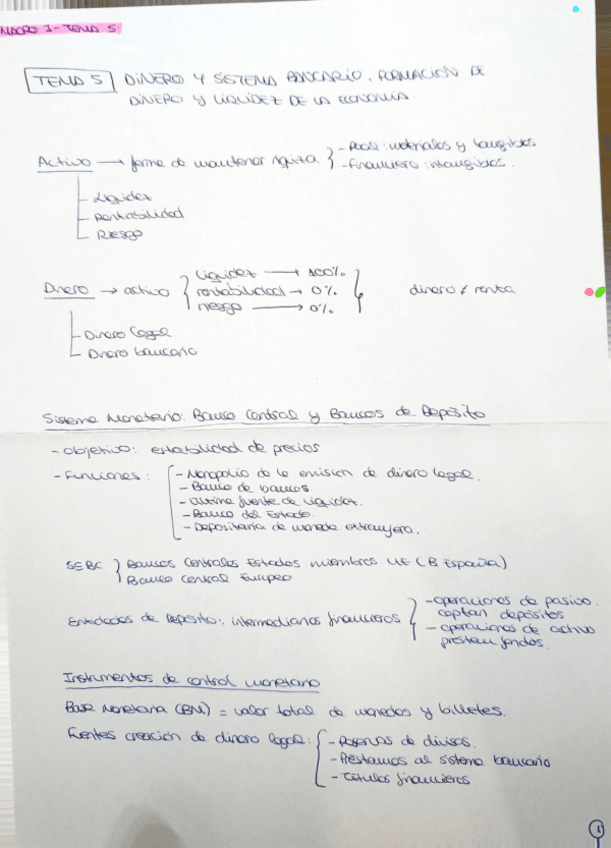 MACRO I - TEMA 5
TEMA 5 DINERO Y SISTEMA BANCARIO. FORMACIÓN DE
DINERO Y LIQUIDEZ DE LA ECONOMIA
Activo → forma de mantener riqueza } - Real: materiales y tangibles
- Financiero: intangibles.
- Liquidez
- Rentabilidad
- Riesgo
Dinero → activo { liquidez → 100%
rentabilidad → 0%
riesgo → 0% }
dinero ≠ renta
- Dinero legal
- Dinero bancario
Sistema Monetario: Banco Central y Bancos de Depósito
- Objetivo: estabilidad de precios
- Funciones: - Monopolio de la emisión de dinero legal.
- Banco de bancos.
- Última fuente de liquidez.
- Banco del Estado.
- Depositaria de moneda extranjera.
SEBC } Bancos Centrales Estados miembros UE (B España)
Banco Central Europeo
Entidades de Depósito: intermediarios financieros { - operaciones de pasivo
captan depósitos
- operaciones de activo
prestan fondos.
Instrumentos de control monetario
Base Monetaria (BM) = valor total de monedas y billetes.
Fuentes creación de dinero legal: { - Reservas de divisas.
- Préstamos al sistema bancario
- Títulos financieros
1